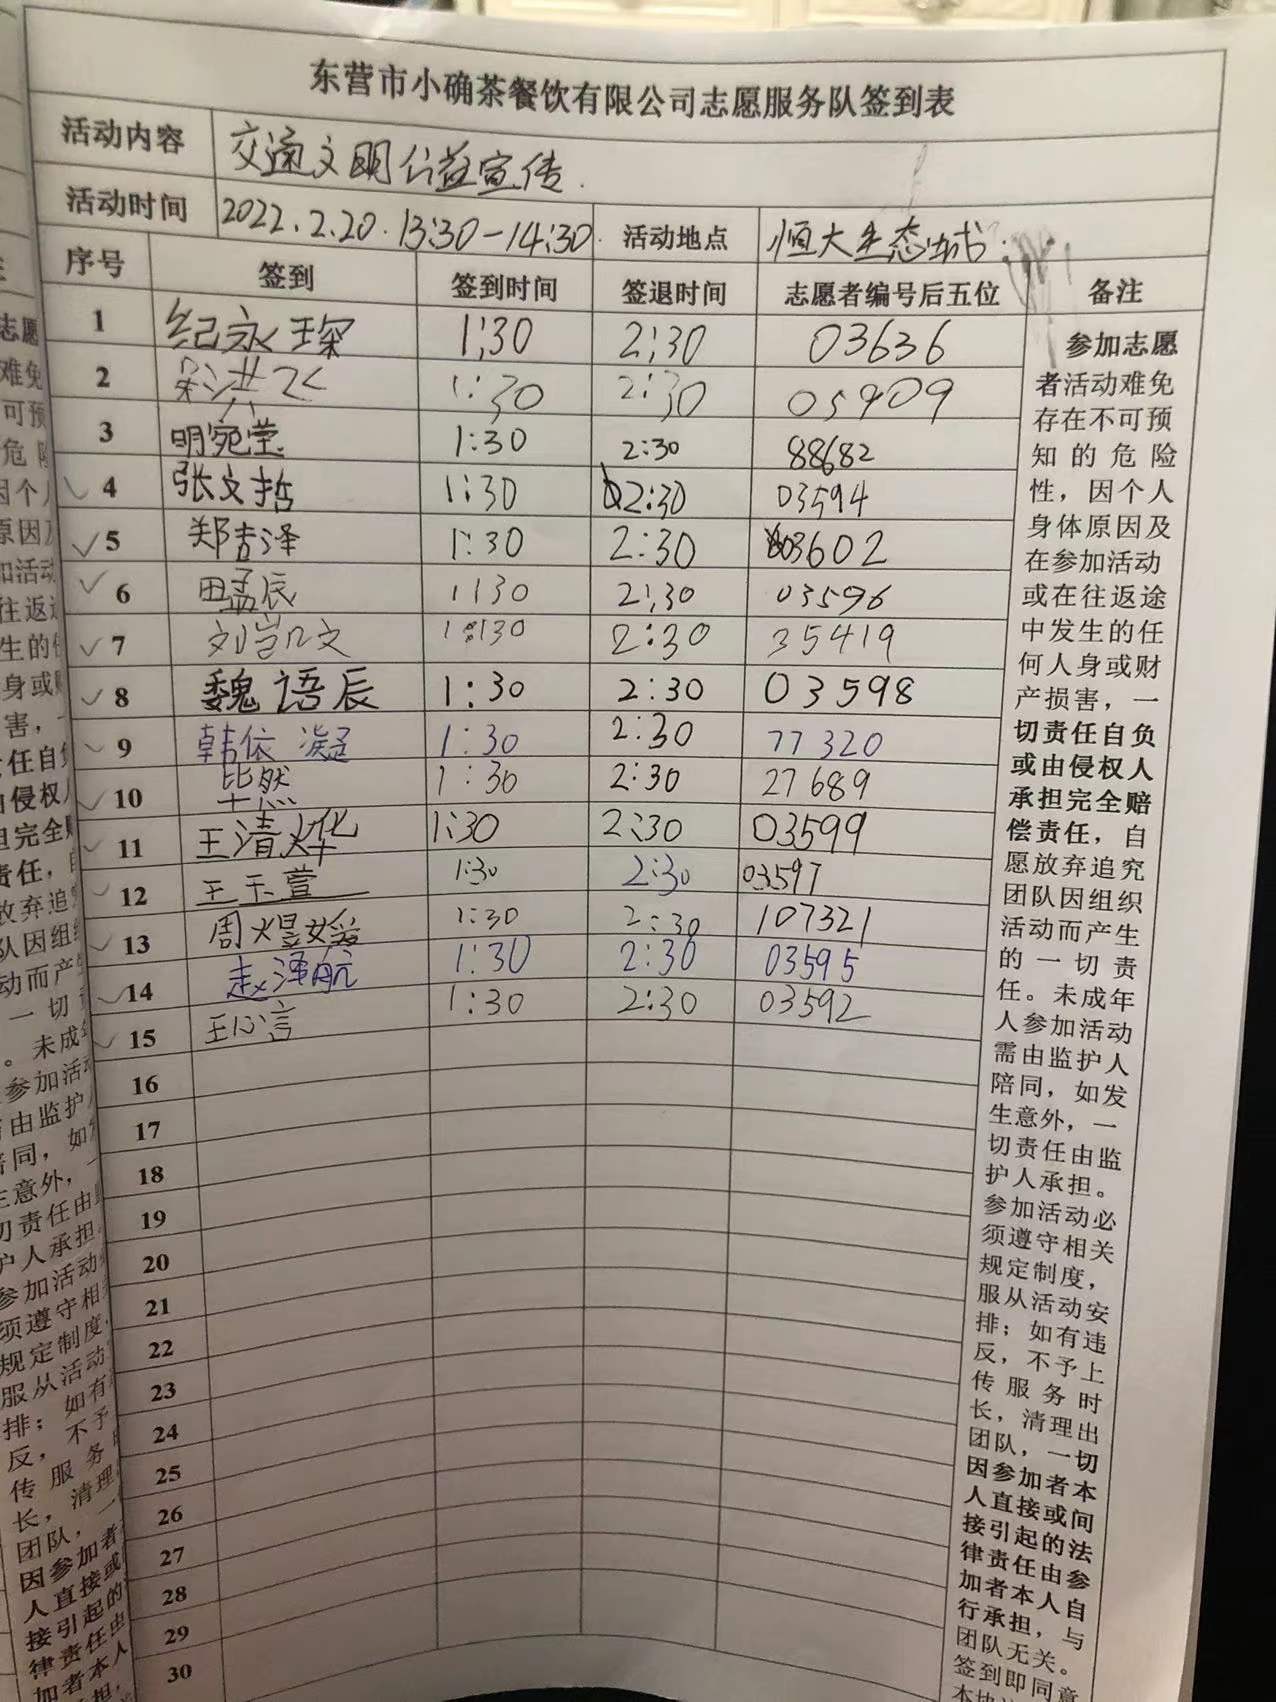 东营市小确茶餐饮有限公司志愿服务队签到表
活动内容 交通文明公益宣传
活动时间 2022.2.20.13:30-14:30. 活动地点 恒大生态城
序号 签到 签到时间 签退时间 志愿者编号后五位 备注
1 纪永琛 1:30 2:30 03636
2 1:30 2:30 05909
3 明宛莹 1:30 2:30 88682
4 张文哲 1:30 2:30 03594
5 郑吉泽 1:30 2:30 03602
6 田孟辰 1:30 2:30 03596
7 刘岂凡文 1:30 2:30 35419
8 魏语辰 1:30 2:30 03598
9 韩依凝 1:30 2:30 77320
10 毕然 1:30 2:30 27689
11 王清烨 1:30 2:30 03599
12 王玉萱 1:30 2:30 03597
13 周煜媛 1:30 2:30 107321
14 赵泽航 1:30 2:30 03595
15 王心言 1:30 2:30 03592
16
17
18
19
20
21
22
23
24
25
26
27
28
29
30
参加志愿
者活动难免
存在不可预
知的危险
性，因个人
身体原因及
在参加活动
或在往返途
中发生的任
何人身或财
产损害，一
切责任自负
或由侵权人
承担完全赔
偿责任，自
愿放弃追究
团队因组织
活动而产生
的一切责
任。未成年
人参加活动
需由监护人
陪同，如发
生意外，一
切责任由监
护人承担。
参加活动必
须遵守相关
规定制度，
服从活动安
排；如有违
反，不予上
传服务时
长，清理出
团队，一切
因参加者本
人直接或间
接引起的法
律责任由参
加者本人自
行承担，与
团队无关。
签到即同意